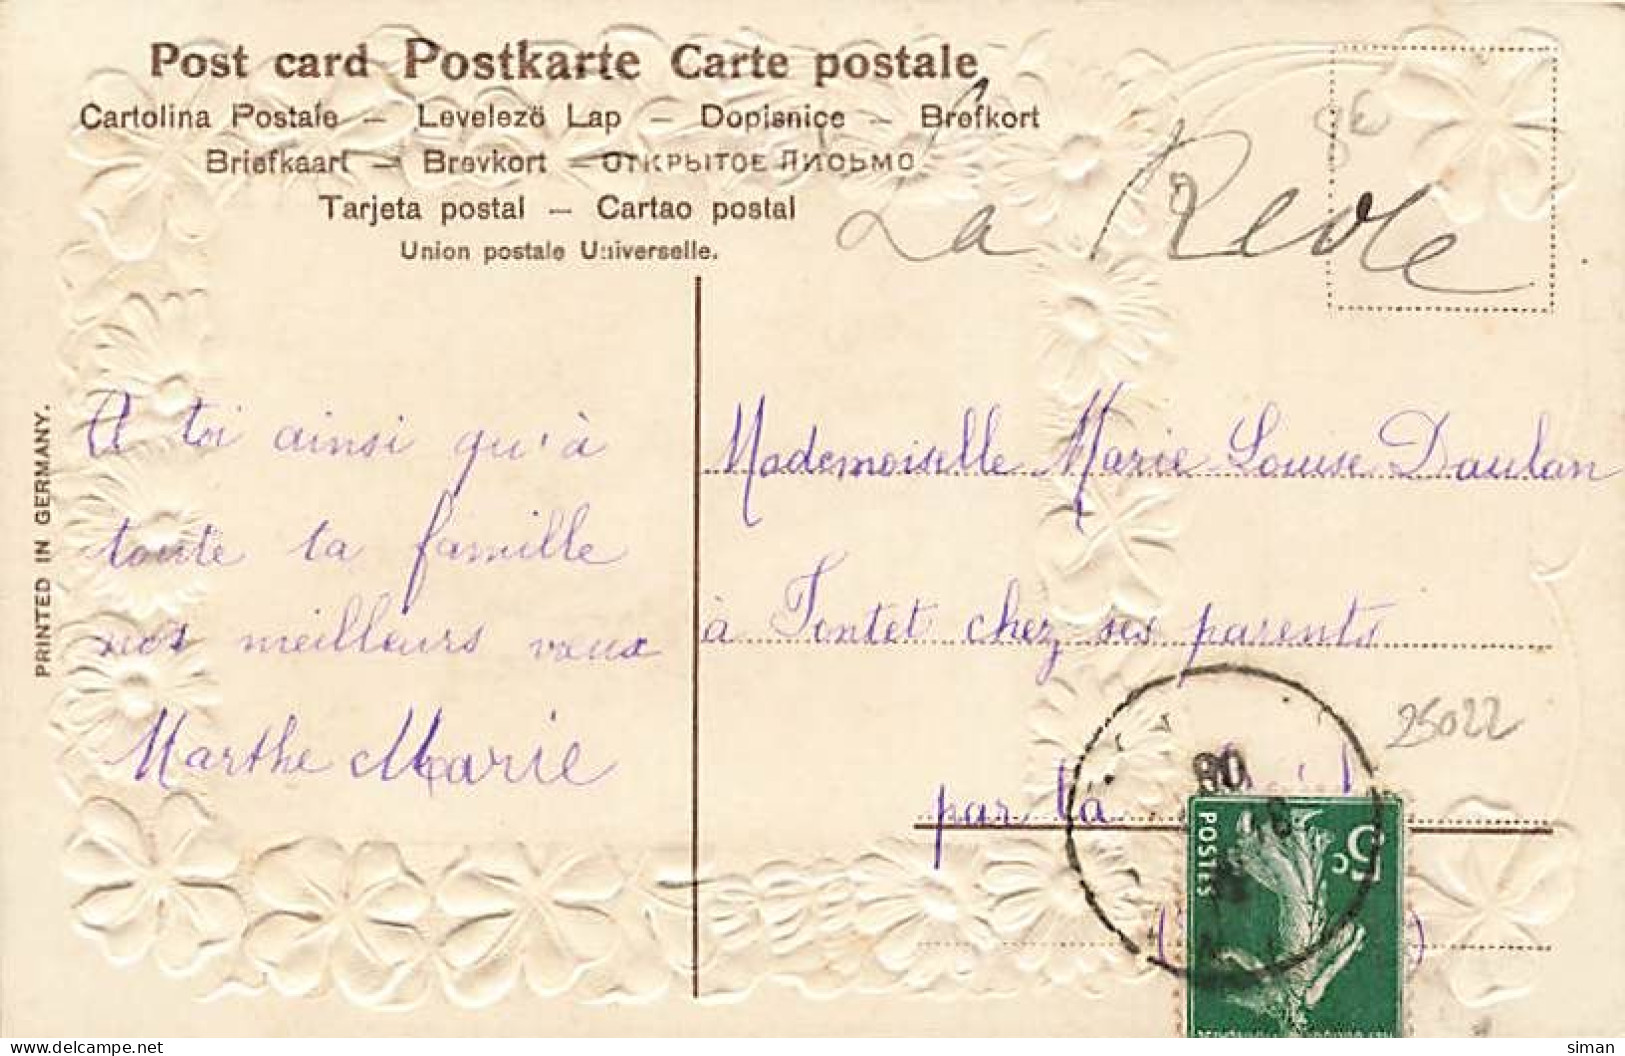 Post card Postkarte Carte postale
Cartolina Postale – Levelező Lap – Dopisnice – Brefkort
Briefkaart – Brevkort – ОТКРЫТОЕ ПИСЬМО
Tarjeta postal – Cartao postal
Union postale Universelle.
La Reole
PRINTED IN GERMANY.
A toi ainsi qu'à
toute ta famille
nos meilleurs vœux
Marthe Marie
Mademoiselle Marie Louise Daulan
à Tentet chez ses parents
25022
par la
POSTES
5c
delcampe.net
siman